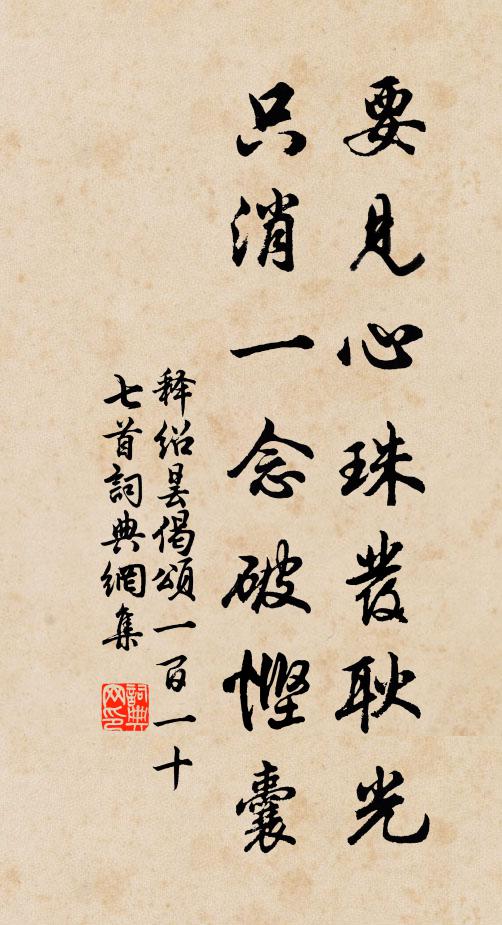 要見心珠發耿光
只消一念破慳囊
释紹曇偈頌一百一十
七首詞典網集
詞典
网印